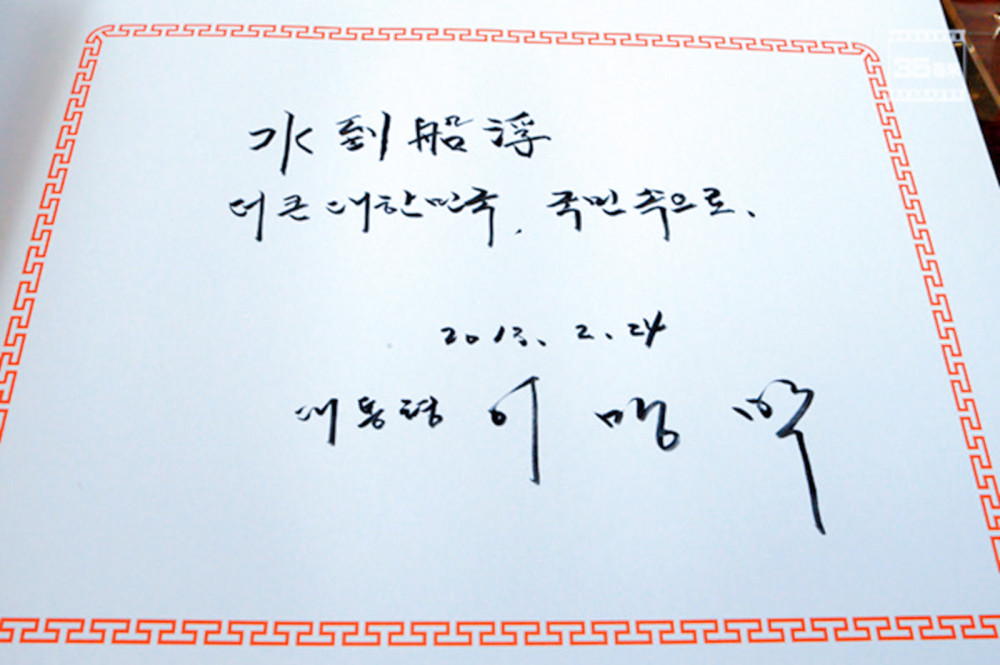 水到船浮
더 큰 대한민국, 국민 속으로.
2013. 2. 24
대통령 이명박